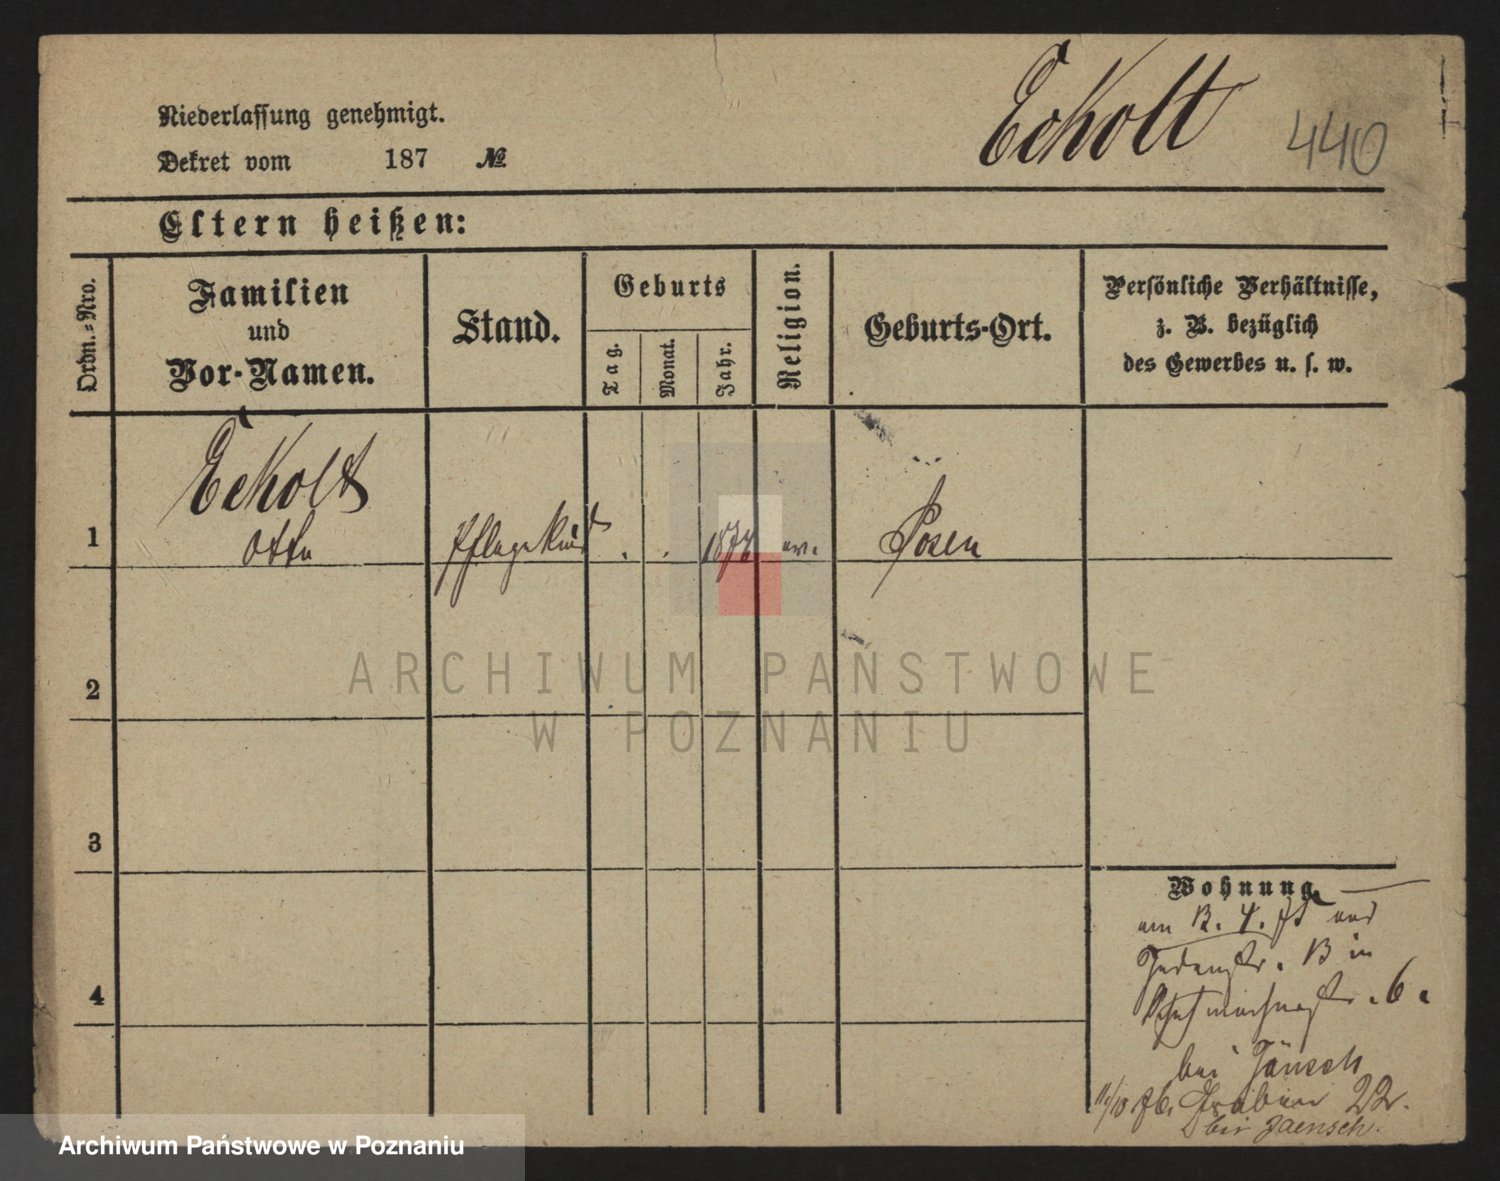 Eckolt 440
Niederlassung genehmigt.
Dekret vom 187 №
Eltern heißen:
Ordn.-Nro.
Familien
und
Vor-Namen.
Stand.
Geburts
Tag.
Monat.
Jahr.
Religion.
Geburts-Ort.
Persönliche Verhältnisse,
z. B. bezüglich
des Gewerbes u. s. w.
Eckolt
1 Otto Pflegekind . . ev. Posen
2
3
4
Wohnung.
am 12. 4. 75 aus
Judenstr. 13 in
Schuhmacherstr. 6.
bei Jänsch
11/10 76. Graben 22.
bei Jaensch.
ARCHIWUM PAŃSTWOWE
W POZNANIU
Archiwum Państwowe w Poznaniu